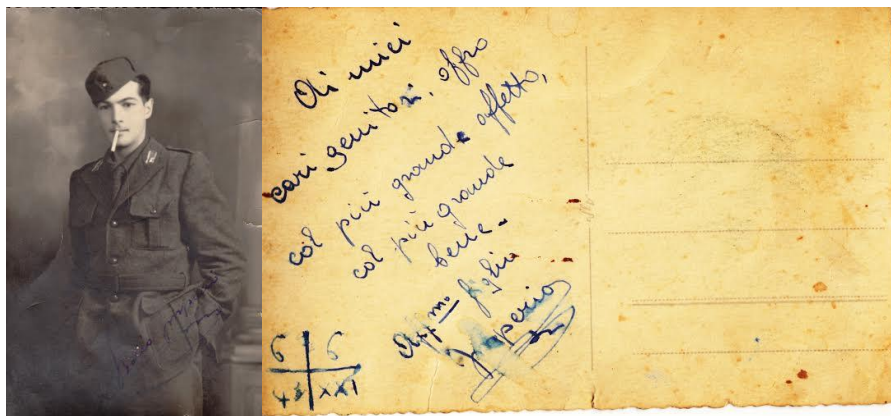 Ai miei
cari genitori, offro
col più grande affetto,
col più grande
bene-
Aff.mo figlio
6 6
43 XXI